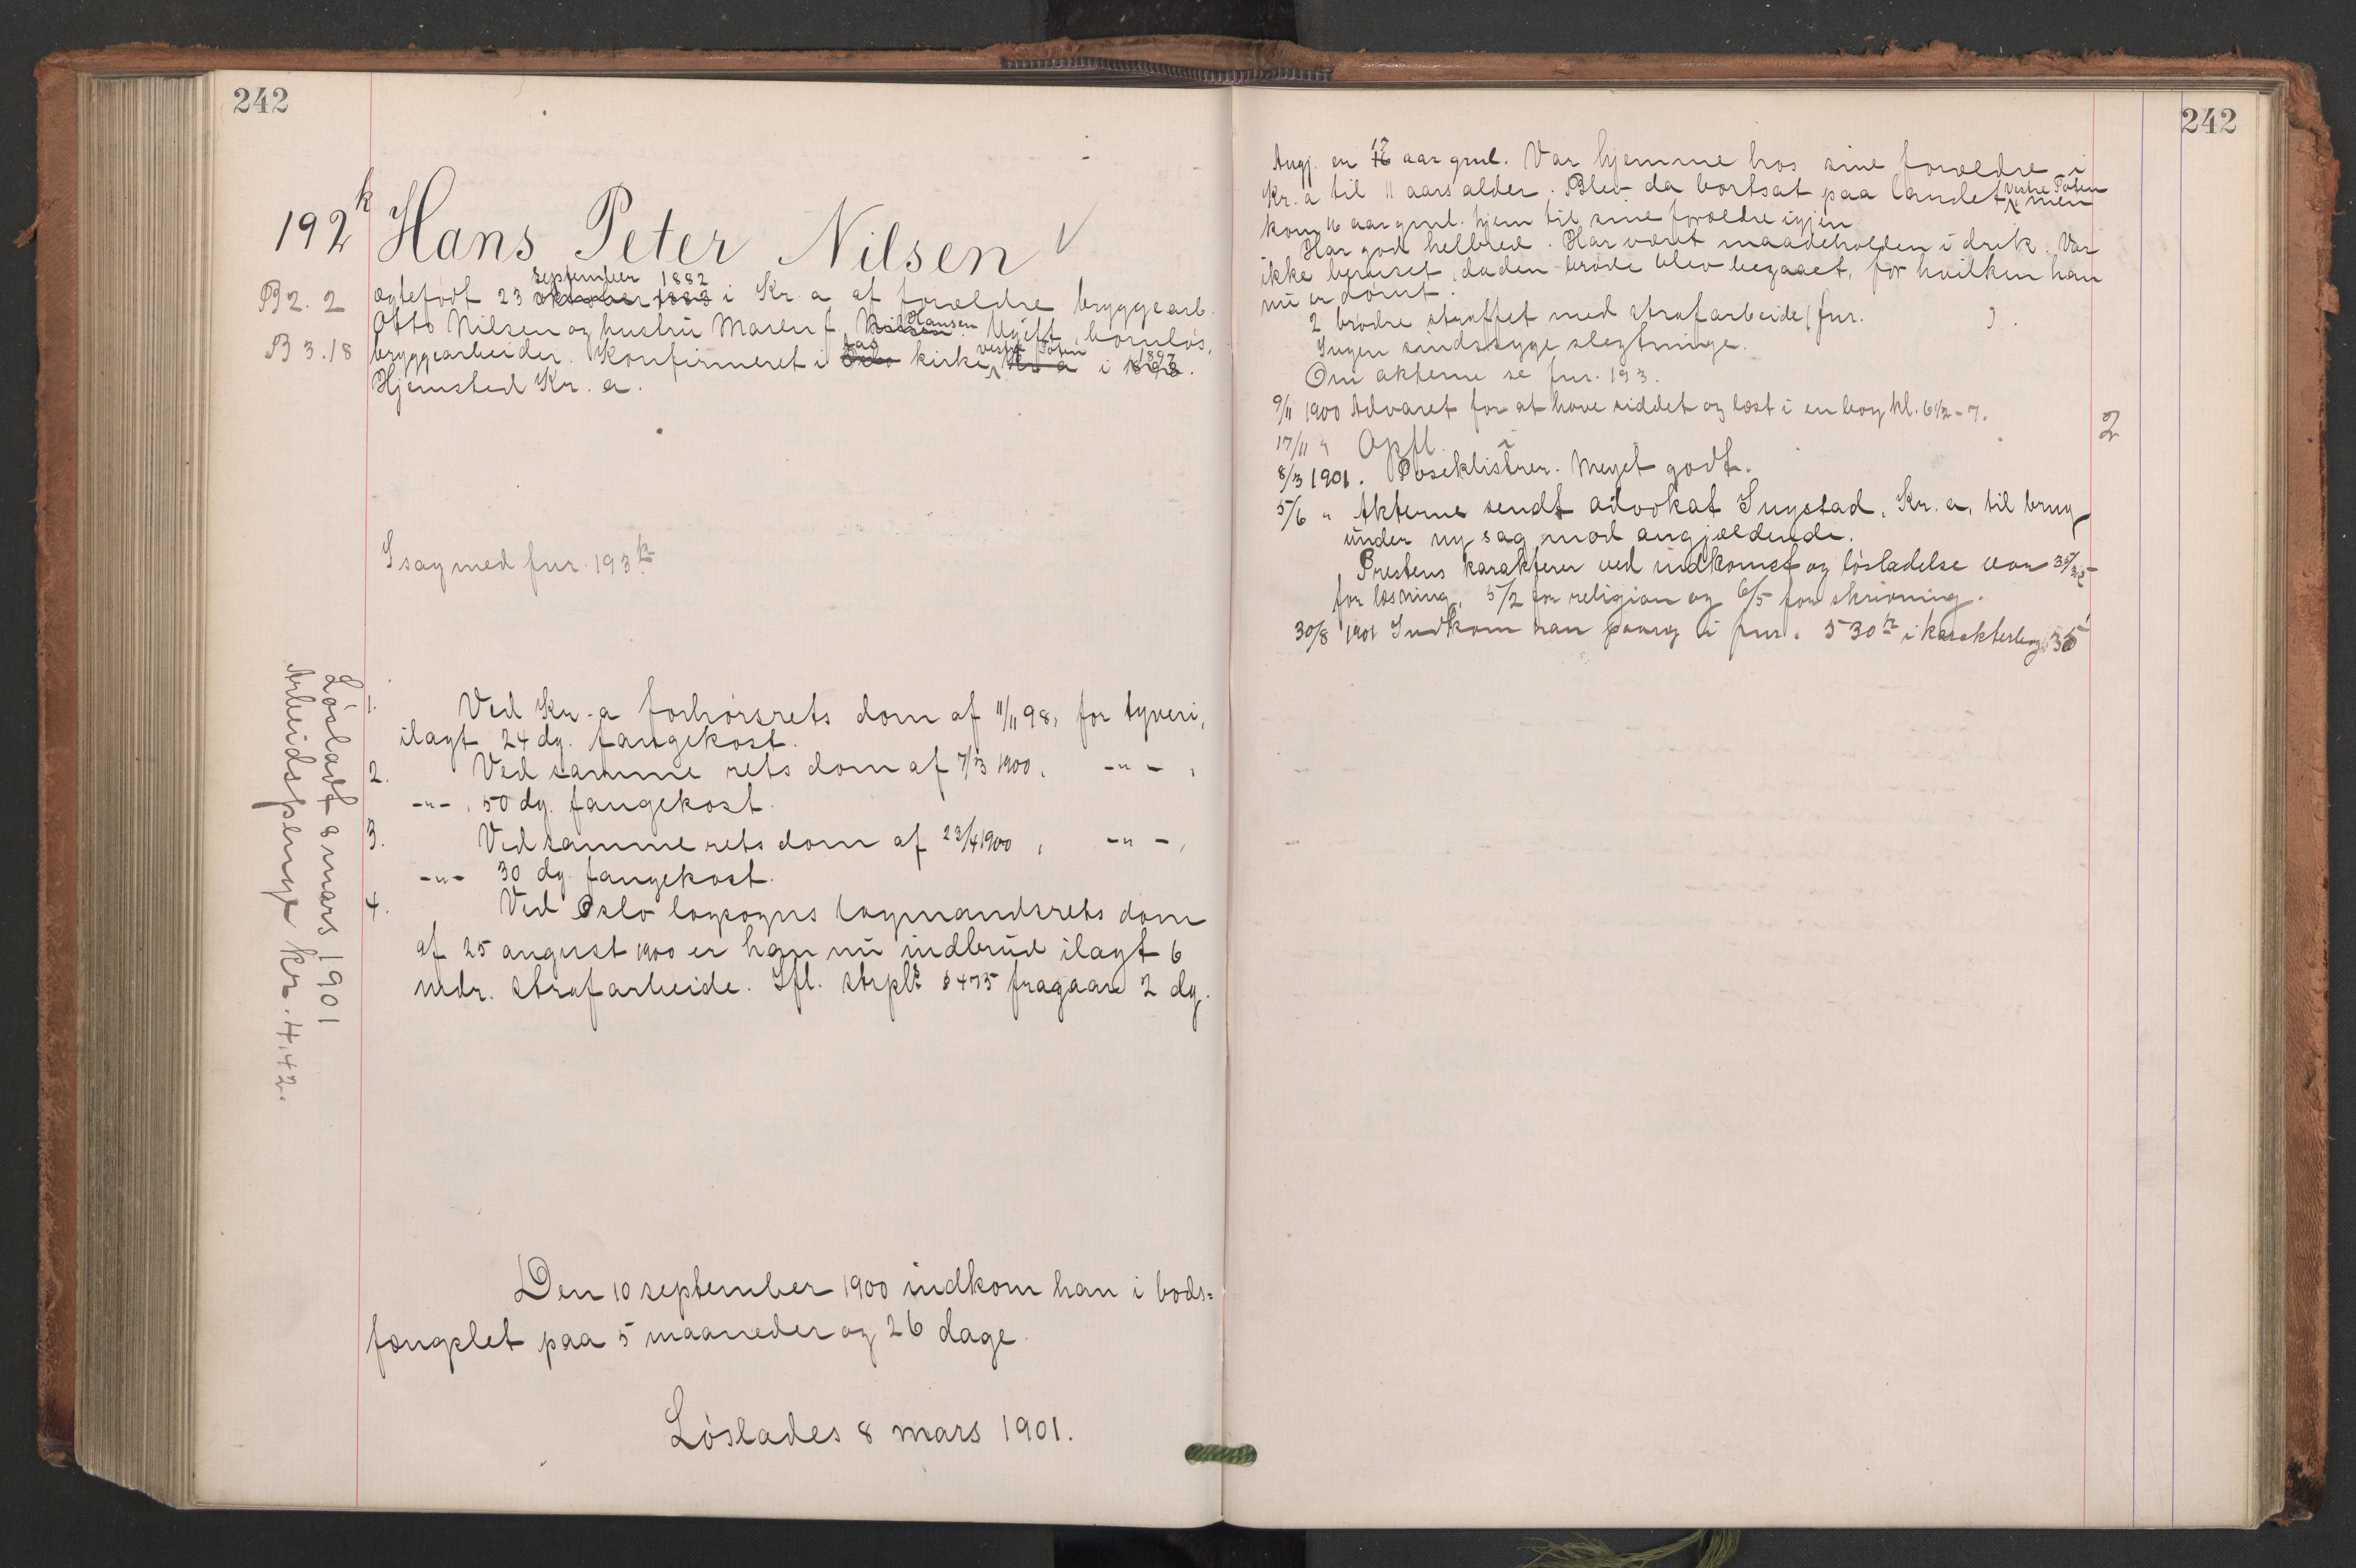 242
192 k Hans Peter Nilsen √
B 2. 2
B 3. 18
september 1882
ægtefødt 23 oktober 1883 i Kr.a af forældre bryggearb.
Otto Nilsen og hustru Maren f. Nilsen Hansen. Ugift, barnløs,
bryggearbeider. Konfirmeret i Oslo Aas kirke, Kr.a vestre Toten i 1898 1897.
Hjemsted Kr.a.
I sag med fnr. 193 k
Løsladt 8 mars 1901
Arbeidspenge kr. 4,42.
1. Ved Kr.a forhørsrets dom af 11/11 98, for tyveri,
ilagt 24 dg. fangekost.
2. Ved samme rets dom af 7/3 1900, -"- ,
-"- , 50 dg. fangekost.
3. Ved samme rets dom af 23/4 1900, -"- ,
-"- 30 dg. fangekost.
4. Ved Oslo lagsogns lagmandsrets dom
af 25 august 1900 er han nu indbrud ilagt 6
mdr. strafarbeide. Ifl. strpl. § 475 fragaar 2 dg.
Den 10 september 1900 indkom han i bods=
fængslet paa 5 maaneder og 26 dage.
Løslades 8 mars 1901.
242
Angj. er 18 17 aar gml. Var hjemme hos sine forældre i
Kr.a til 11 aars alder. Blev da bortsat paa landet, vestre Toten men
kom 16 aar gml. hjem til sine forældre igjen.
Har god helbred. Har været maadeholden i drik. Var
ikke beruset, da den brøde blev begaaet, for hvilken han
nu er dømt.
2 brødre straffet med strafarbeide (fnr. ).
Ingen sindssyge slegtninge.
Om akterne se fnr. 193.
9/11 1900 Advaret for at have siddet og læst i en bog kl. 6 1/2 - 7.
2
17/11 " Opfl.
8/3 1901. Poseklistrer. Meget godt.
5/6 " Akterne sendt advokat Lugstad, Kr.a, til brug
under ny sag mod angjældende.
Prestens karakterer ved indkomst og løsladelse var
for læsning, 5/2 for religion og 6/5 for skrivning.
30/8 1901 Indkom han paany i fnr. 530 k i karakterbog 35